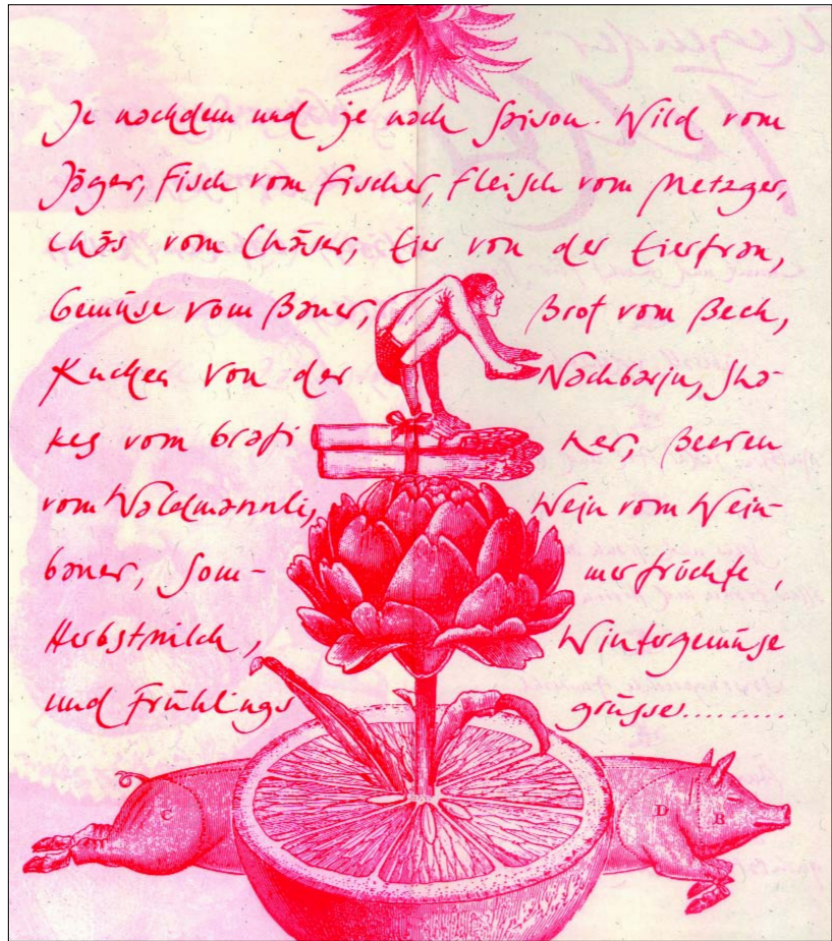 Je nachdem und je nach Saison. Wild vom
Jäger, Fisch vom Fischer, Fleisch vom Metzger,
Chäs vom Chäser, Eier von der Eierfrau,
Gemüse vom Bauer, Brot vom Beck,
Kuchen von der Nachbarin, Sha-
kes vom Grafi ker, Beeren
vom Waldmannli, Wein vom Wein-
bauer, Som- merfrüchte,
Herbstmilch, Wintergemüse
und Frühlings grüsse.........
C D B